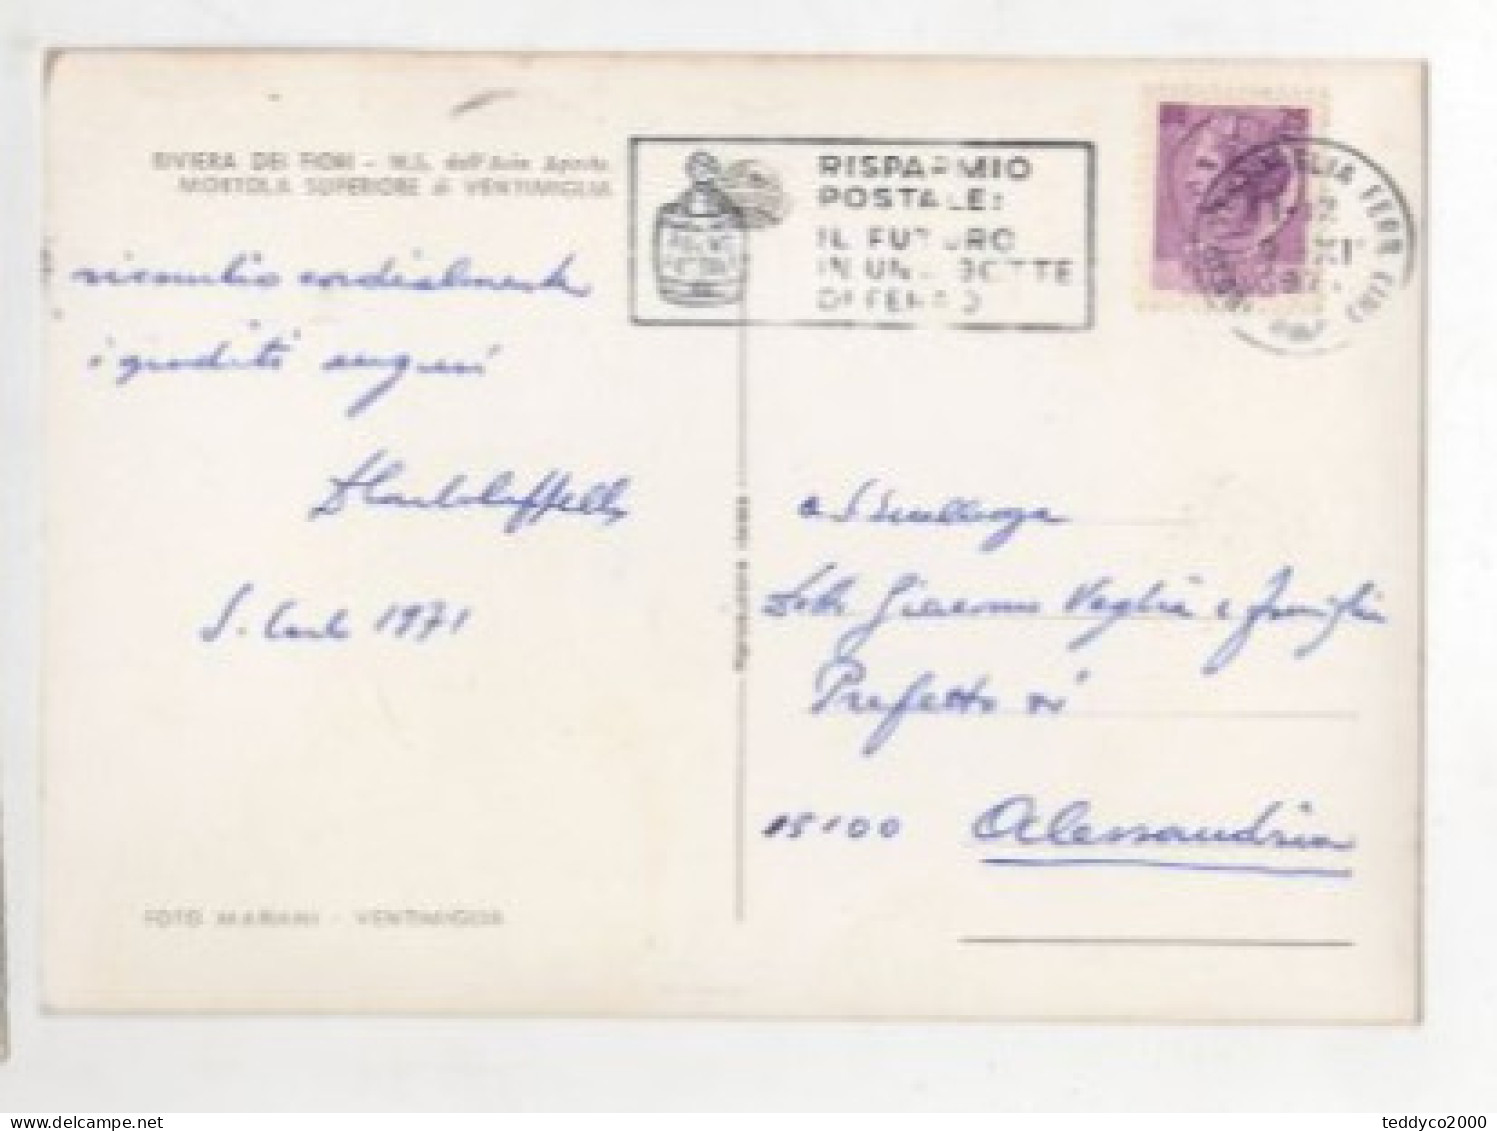 RIVIERA DEI FIORI - N.S. dell'Aria Aperta
MORTOLA SUPERIORE di VENTIMIGLIA
RISPARMIO
POSTALE:
IL FUTURO
IN UNA BOTTE
DI FERRO
ricambio cordialmente
i graditi auguri
S. Carlo 1971
a S. Eccellenza
Giacomo Veglia e famiglia
Prefetto di
15100 Alessandria
FOTO MARIANI - VENTIMIGLIA
teddyco2000